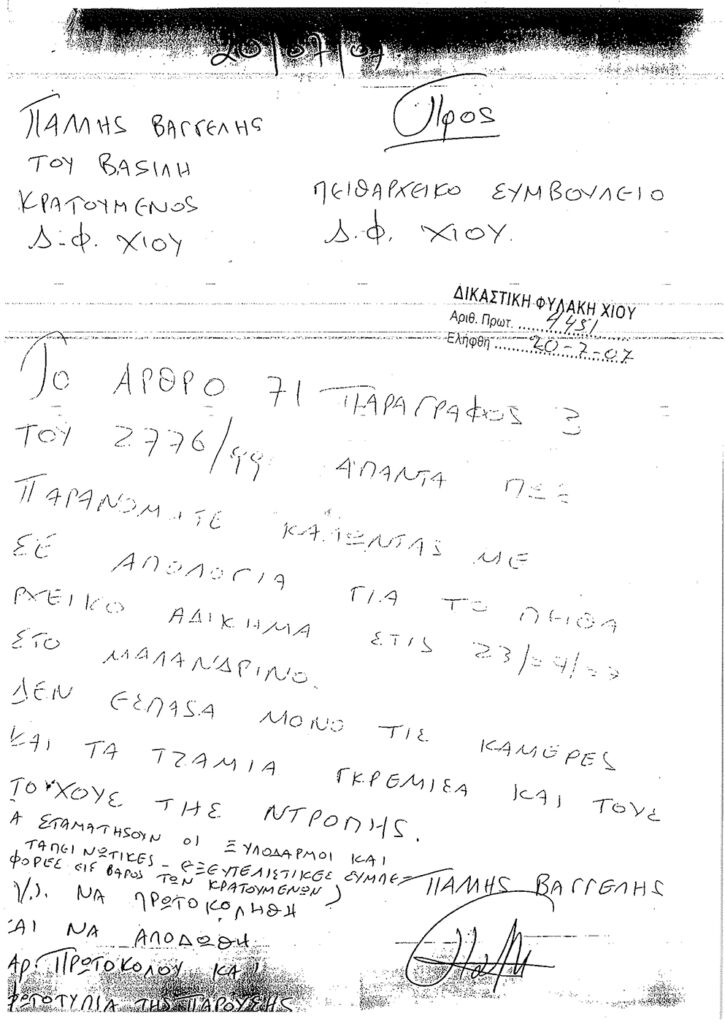 20/07/07
ΠΑΛΛΗΣ ΒΑΓΓΕΛΗΣ
ΤΟΥ ΒΑΣΙΛΗ
ΚΡΑΤΟΥΜΕΝΟΣ
Δ.Φ. ΧΙΟΥ
Προς
ΠΕΙΘΑΡΧΕΙΚΟ ΣΥΜΒΟΥΛΕΙΟ
Δ.Φ. ΧΙΟΥ.
ΔΙΚΑΣΤΙΚΗ ΦΥΛΑΚΗ ΧΙΟΥ
Αριθ. Πρωτ. 4451
Ελήφθη 20-7-07
ΤΟ ΑΡΘΡΟ 71 ΠΑΡΑΓΡΑΦΟΣ 3
ΤΟΥ 2776/99 ΑΠΑΝΤΑ ΠΩΣ
ΠΑΡΑΝΟΜΕΙΤΕ ΚΑΛΩΝΤΑΣ ΜΕ
ΣΕ ΑΠΟΛΟΓΙΑ ΓΙΑ ΤΟ ΠΕΙΘΑ
ΡΧΕΙΚΟ ΑΔΙΚΗΜΑ ΣΤΙΣ 23/04/07
ΣΤΟ ΜΑΛΑΝΔΡΙΝΟ.
ΔΕΝ ΕΣΠΑΣΑ ΜΟΝΟ ΤΙΣ ΚΑΜΕΡΕΣ
ΚΑΙ ΤΑ ΤΖΑΜΙΑ ΓΚΡΕΜΙΣΑ ΚΑΙ ΤΟΥΣ
ΤΟΙΧΟΥΣ ΤΗΣ ΝΤΡΟΠΗΣ.
Α ΣΤΑΜΑΤΗΣΟΥΝ ΟΙ ΞΥΛΟΔΑΡΜΟΙ ΚΑΙ
ΤΑΠΕΙΝΩΤΙΚΕΣ - ΕΞΕΥΤΕΛΙΣΤΙΚΕΣ ΣΥΜΠΕ
ΦΟΡΕΣ ΕΙΣ ΒΑΡΟΣ ΤΩΝ ΚΡΑΤΟΥΜΕΝΩΝ)
ΠΑΛΛΗΣ ΒΑΓΓΕΛΗΣ
Υ.Σ. ΝΑ ΠΡΩΤΟΚΟΛΗΘΗ
ΑΙ ΝΑ ΑΠΟΔΩΘΗ
ΑΡ. ΠΡΩΤΟΚΟΛΟΥ ΚΑΙ
ΦΩΤΟΤΥΠΙΑ ΤΗΣ ΠΑΡΟΥΣΗΣ